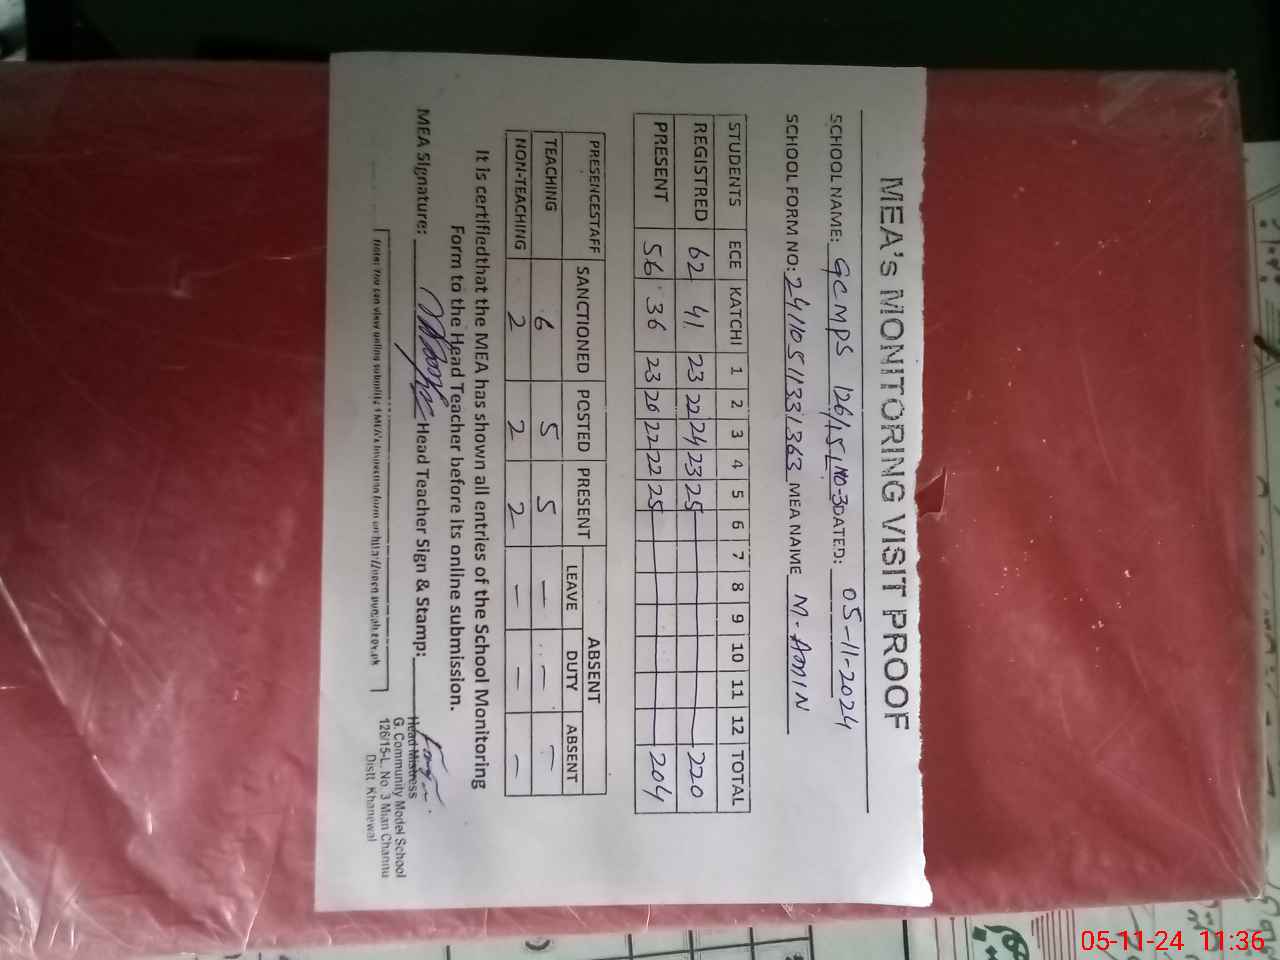 MEA's MONITORING VISIT PROOF
SCHOOL NAME: GCMPS 126/15L NO-3 DATED: 05-11-2024
SCHOOL FORM NO: 24110511331363 MEA NAIME M-AMIN
STUDENTS ECE KATCHI 1 2 3 4 5 6 7 8 9 10 11 12 TOTAL
REGISTRED 62 41 23 22 24 23 25 220
PRESENT 56 36 23 20 22 22 25 204
PRESENCESTAFF SANCTIONED POSTED PRESENT ABSENT
LEAVE DUTY ABSENT
TEACHING 6 5 5 — — —
NON-TEACHING 2 2 2 — — —
It is certifiedthat the MEA has shown all entries of the School Monitoring
Form to the Head Teacher before its online submission.
MEA Signature: Head Teacher Sign & Stamp:
Head Mistress
G. Community Model School
126/15-L. No. 3 Mian Channu
Distt. Khanewal
Note: You can view online submitted MEA's Inspection form on
05-11-24 11:36